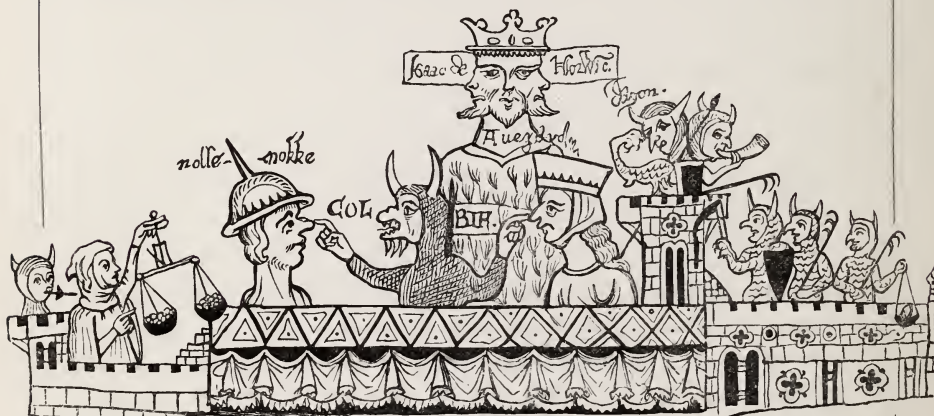 Isaac de Norwic.
Dagon.
nolle-mokke
COL
BIH